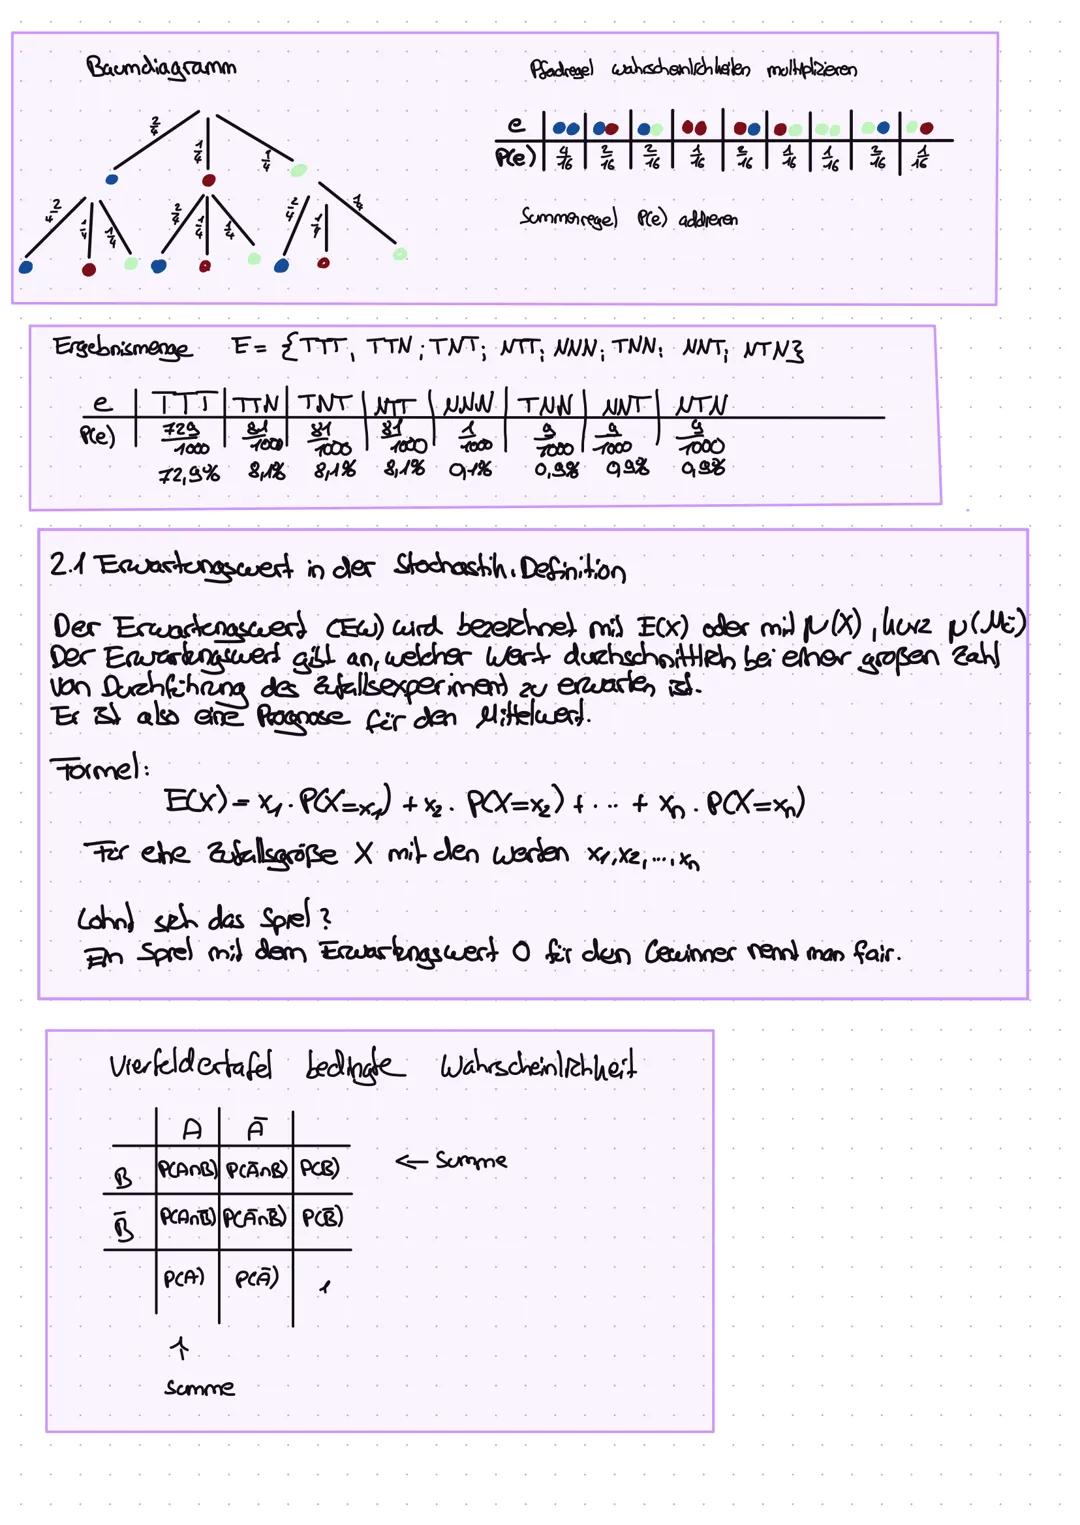 Baumdiagramm
Pfadregel Wahrscheinlichkeiten multiplizieren
2/4 1/4 1/4
2/4 1/4 1/4 2/4 1/4 1/4 2/4 1/4 1/4
e
P(e) 4/16 2/16 2/16 1/16 2/16 1/16 1/16 2/16 1/16
Summenregel P(e) addieren
Ergebnismenge E = {TTT, TTN; TNT; NTT; NNN; TNN; NNT; NTN}
e TTT TTN TNT NTT NNN TNN NNT NTN
P(e) 729/1000 81/1000 81/1000 81/1000 1/1000 9/1000 9/1000 9/1000
72,9% 8,1% 8,1% 8,1% 0,1% 0,9% 0,9% 0,9%
2.1 Erwartungswert in der Stochastik. Definition
Der Erwartungswert (EW) wird bezeichnet mit E(X) oder mit μ(X), kurz μ (Mü)
Der Erwartungswert gibt an, welcher Wert durchschnittlich bei einer großen Zahl
von Durchführung des Zufallsexperiment zu erwarten ist.
Er ist also eine Prognose für den Mittelwert.
Formel:
E(X) = x₁ · P(X=x₁) + x₂ · P(X=x₂) + ... + xₙ · P(X=xₙ)
Für eine Zufallsgröße X mit den Werten x₁, x₂, ..., xₙ
Lohnt sich das Spiel?
Ein Spiel mit dem Erwartungswert 0 für den Gewinner nennt man fair.
Vierfeldertafel bedingte Wahrscheinlichkeit
A Ā
B P(A∩B) P(Ā∩B) P(B) ← Summe
B̄ P(A∩B̄) P(Ā∩B̄) P(B̄)
P(A) P(Ā) 1
↑
Summe